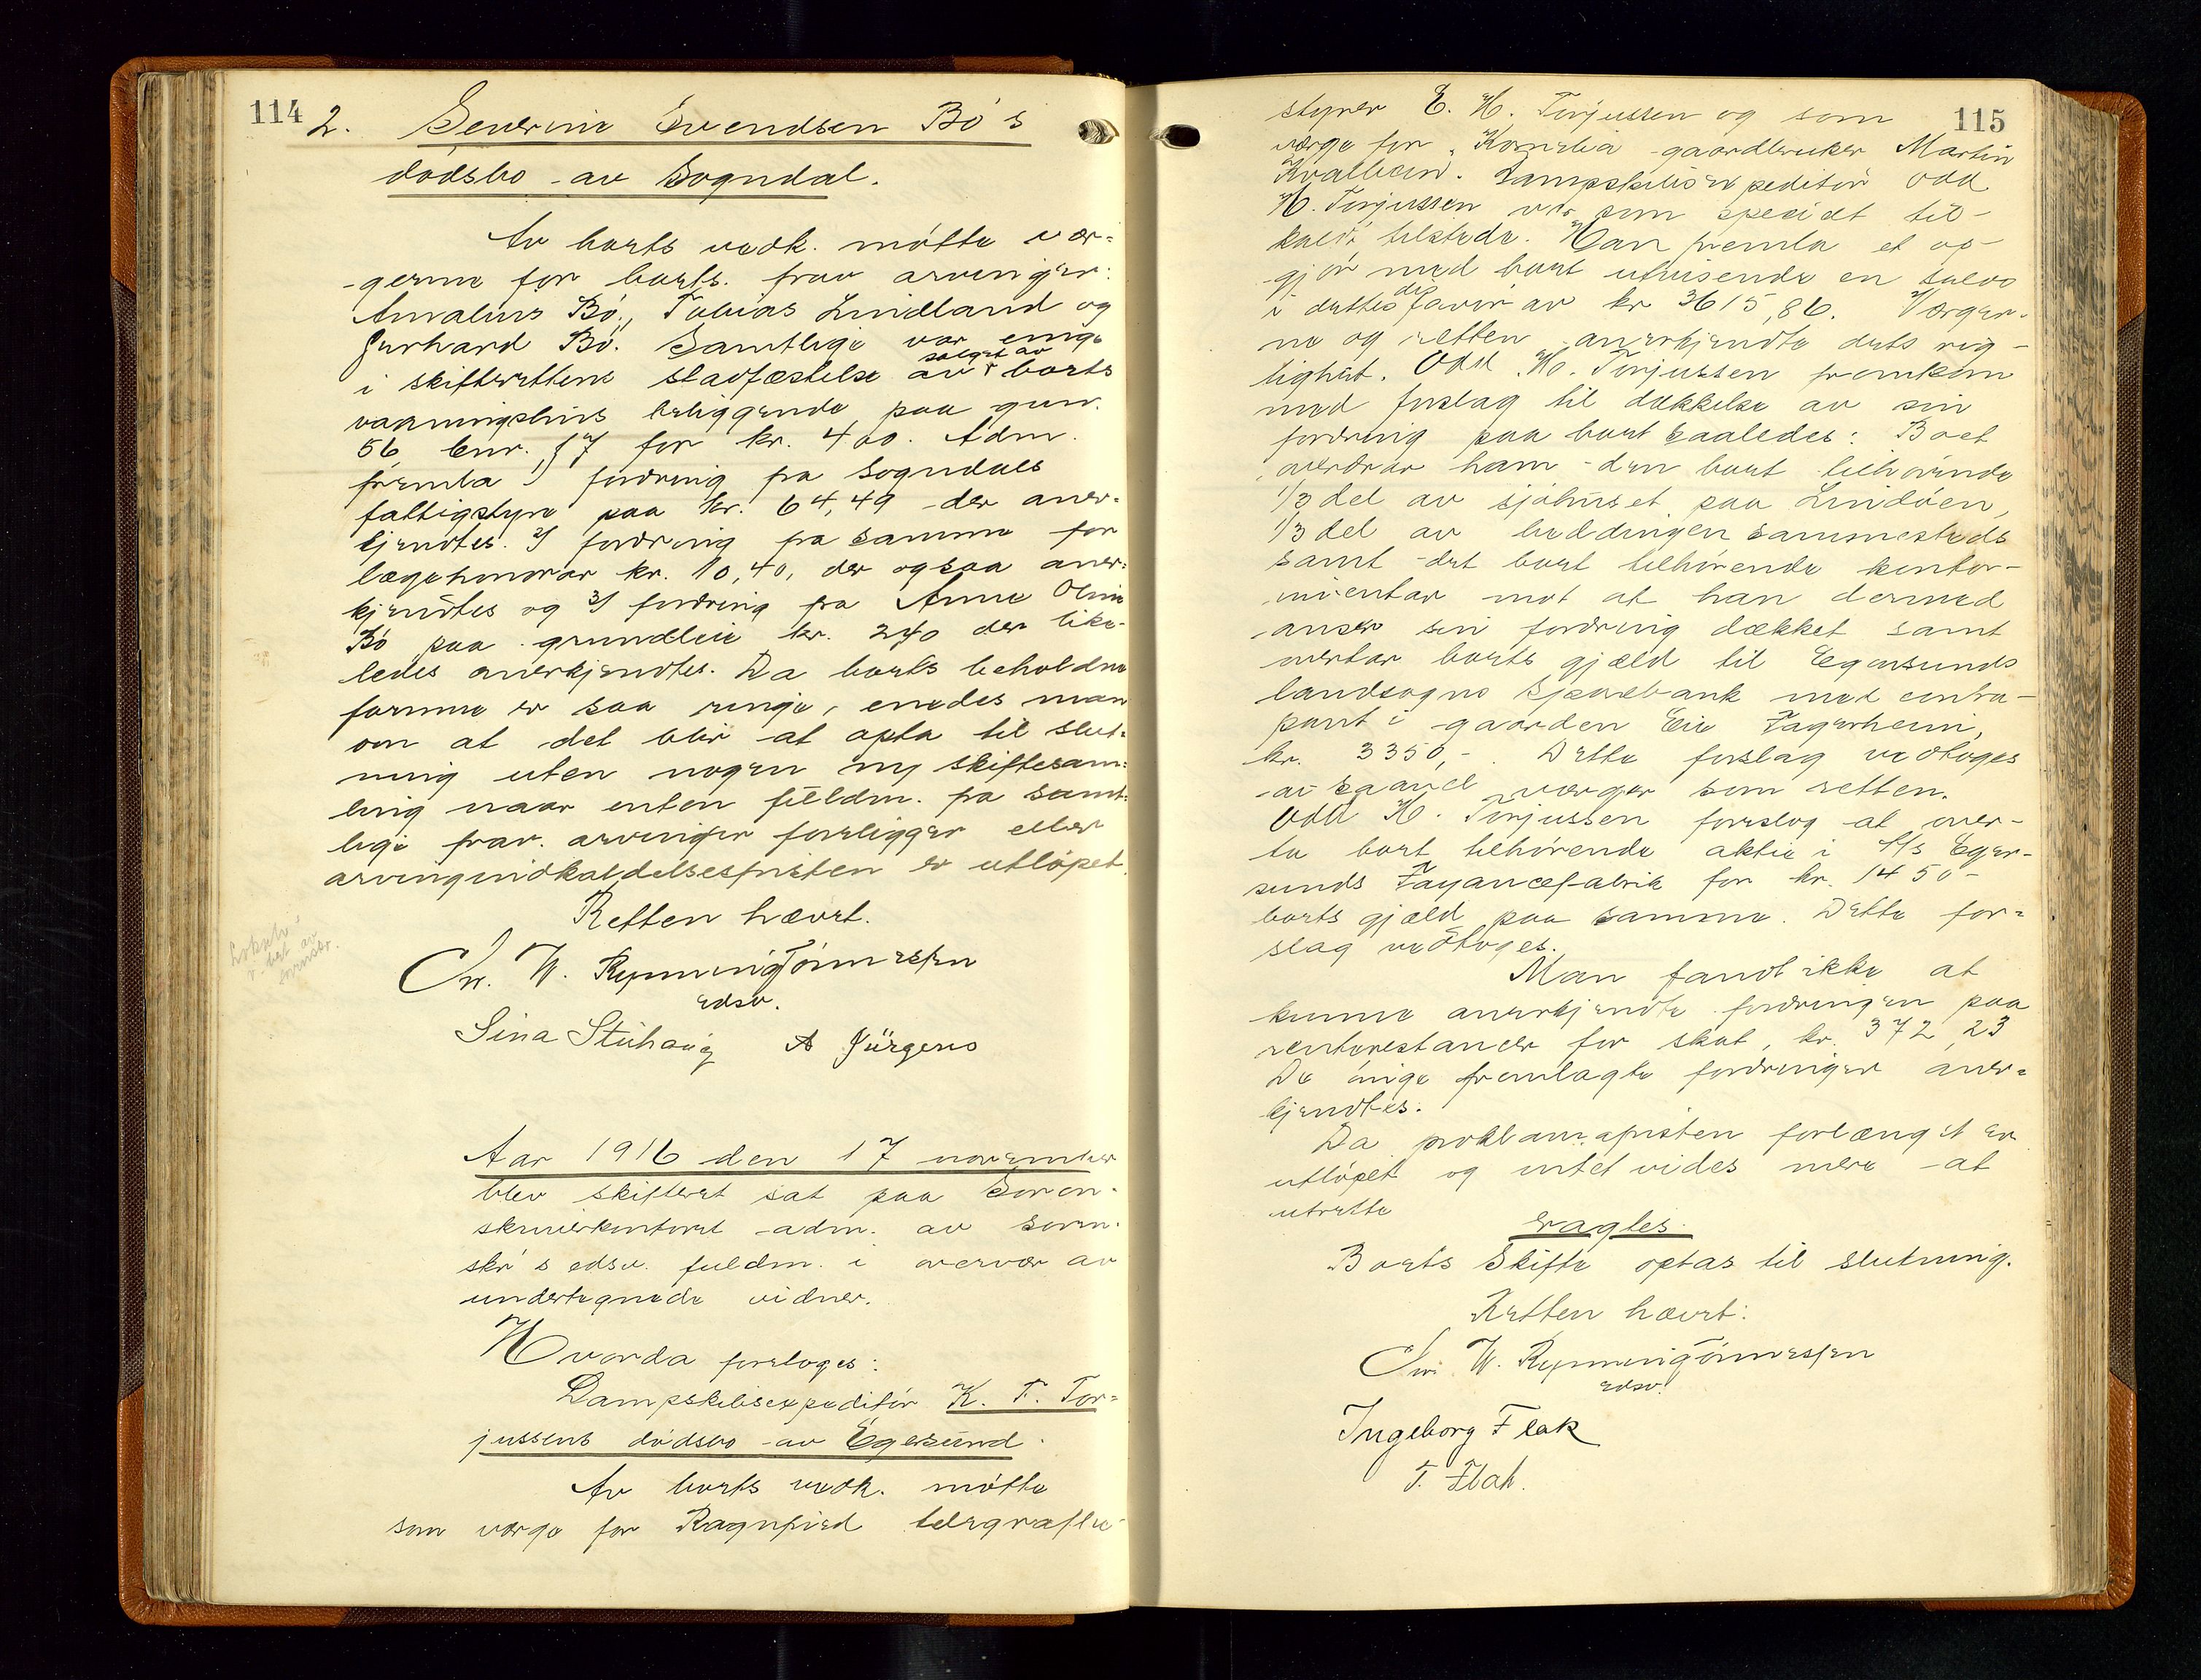 114
2. Severine Svendsen Bö's
dödsbo av Sogndal.
Av boets vedk. mötte vær-
gerne for boets frav arvinger:
Amalius Bö, Tobias Lindland og
Gerhard Bö. Samtlige var enige
i skifterettens stadfæstelse av salget av boets
vaaningshus beliggende paa gnr.
56 bnr. 17 for kr. 400. Adm.
fremla 1/ fordring fra Sogndals
fattigstyre paa kr. 64,49 der aner-
kjendtes. 2/ fordring fra samme for
lægehonorar kr. 10,40, der ogsaa aner-
kjendtes og 3/ fordring fra Anne Oline
Bö paa grundleie kr. 240 der like-
ledes anerkjendtes. Da boets beholdne
formue er saa ringe, enedes man
om at det blir at opta til slut-
ning uten nogen ny skiftesam-
ling naar enten fuldm. fra samt-
lige frav. arvinger foreligger eller
arvingindkaldelsesfristen er utlöpet.
Retten hævet.
Chr. W. Rynning Tönnesen
edsv.
Sina Stuhaug A Jürgens
Aar 1916 den 17 november
blev skifteret sat paa Soren-
skriverkontoret adm. av soren-
skr's edsv. fuldm. i overvær av
undertegnede vidner.
Hvorda foretoges:
Dampskibsexpeditör K. T. Tor-
jussens dödsbo av Egersund.
Av boets vedk. mötte
som verge for Ragnfrid telegrafbe-
115
styrer E. H. Torjussen og som
verge for Kornelia gaardbruker Martin
Kvalbein. Dampskibsexpeditör Odd
H. Torjussen var som specielt til-
kaldt tilstede. Han fremla et op-
gjör med boet utvisende en saldo
i dettes disfavör av kr 3615,86. Verger-
ne og retten anerkjendte dets rig-
tighet. Odd H. Torjussen fremkom
med forslag til dækkelse av sin
fordring paa boet saaledes: Boet
overdrar ham den boet tilhörende
1/3 del av sjöhuset paa Lindöen,
1/3 del av beddingen sammesteds
samt det boet tilhörende kontor-
inventar mot at han dermed
anser sin fordring dækket samt
overtar boets gjæld til Egersunds
landsogns Sparebank med
pant i gaarden Eie Fagerheim,
kr. 3350,-. Dette forslag vedtoges
av saavel verger som retten.
Odd H. Torjussen foreslog at over-
ta boet tilhörende aktie i A/S Eger-
sunds Fayancefabrik for kr. 1450-
boets gjæld paa samme. Dette for-
slag vedtoges.
Man fandt ikke at
kunne anerkjendte fordringen paa
renterestancer for skat, kr. 372,23
De övige fremlagte fordringer aner-
kjendtes.
Da proklamafristen forlængst er
utlöpet og intet vides mere at
utrette
eragtes.
Boets Skifte optas til slutning.
Retten hævet:
Chr. W. Rynning Tönnesen
edsv.
Ingeborg Flak
T. Flak.